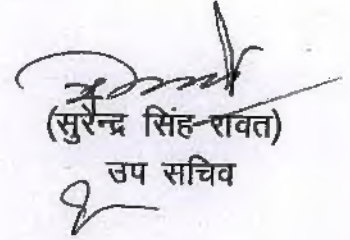 (सुरेन्द्र सिंह रावत)
उप सचिव